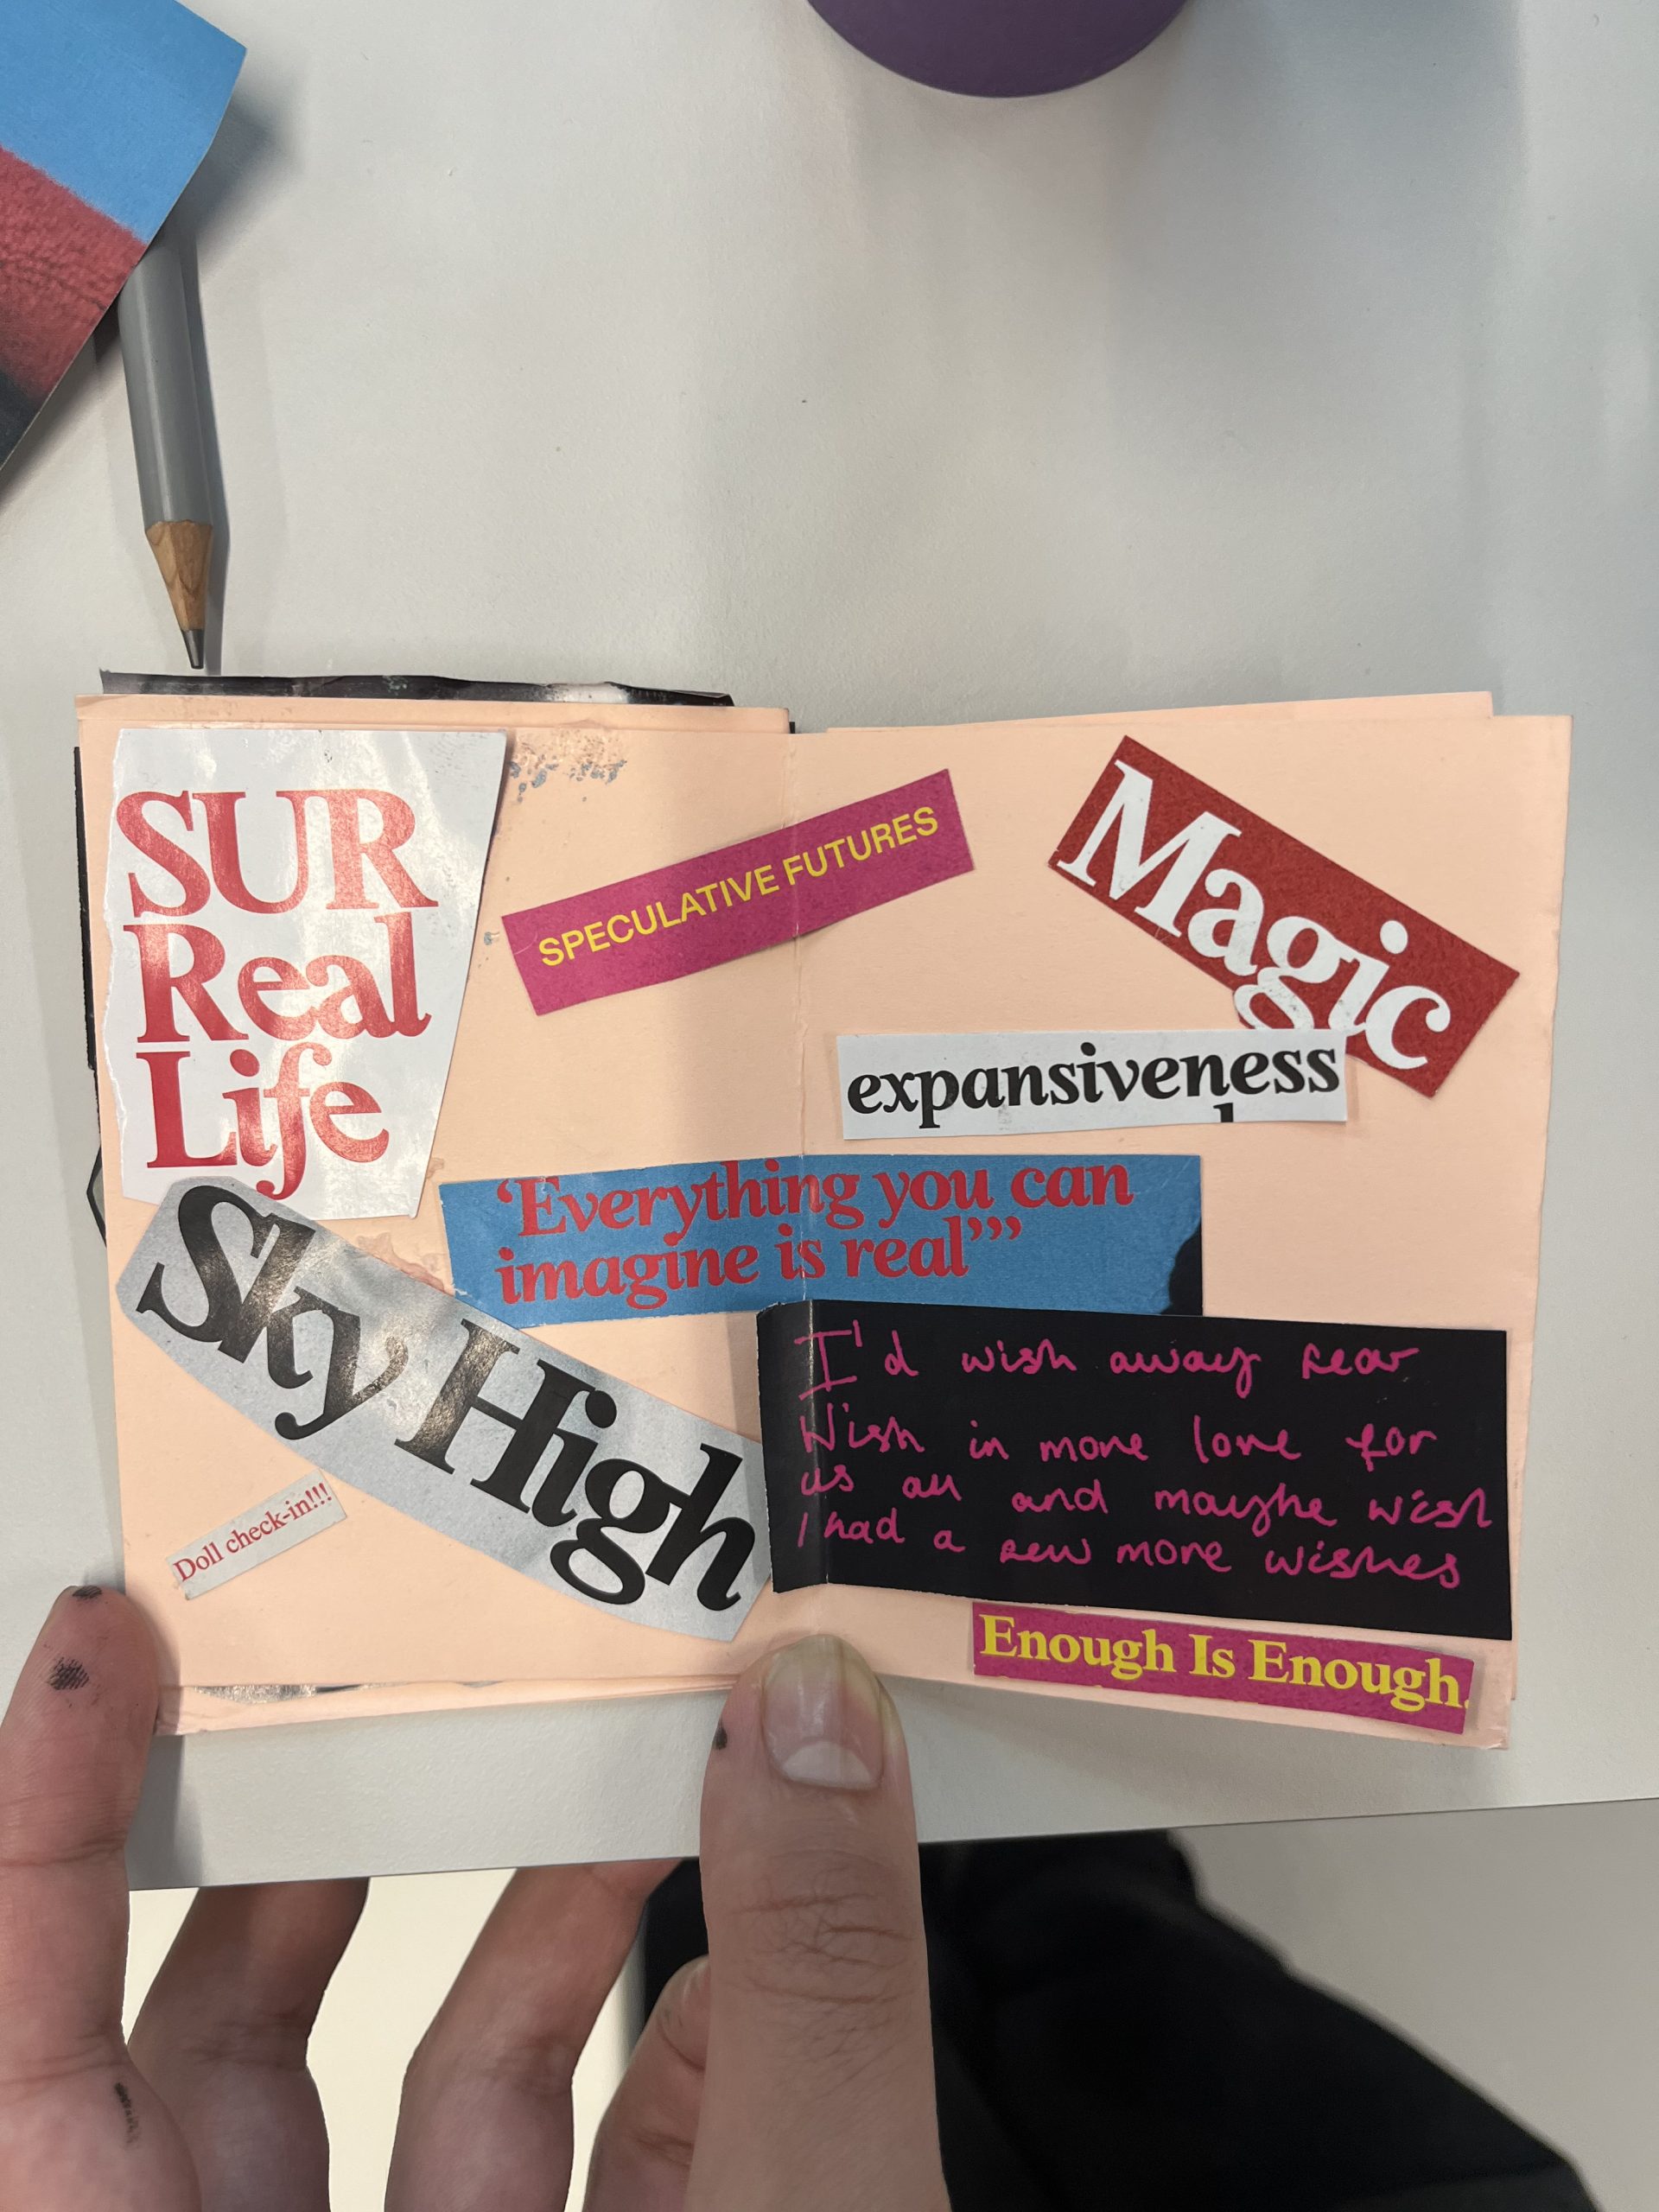 SUR
Real
Life
SPECULATIVE FUTURES
Magic
expansiveness
‘Everything you can
imagine is real’”
Sky High
Doll check-in!!!
I'd wish away fear
Wish in more love for
us all and maybe wish
I had a few more wishes
Enough Is Enough.